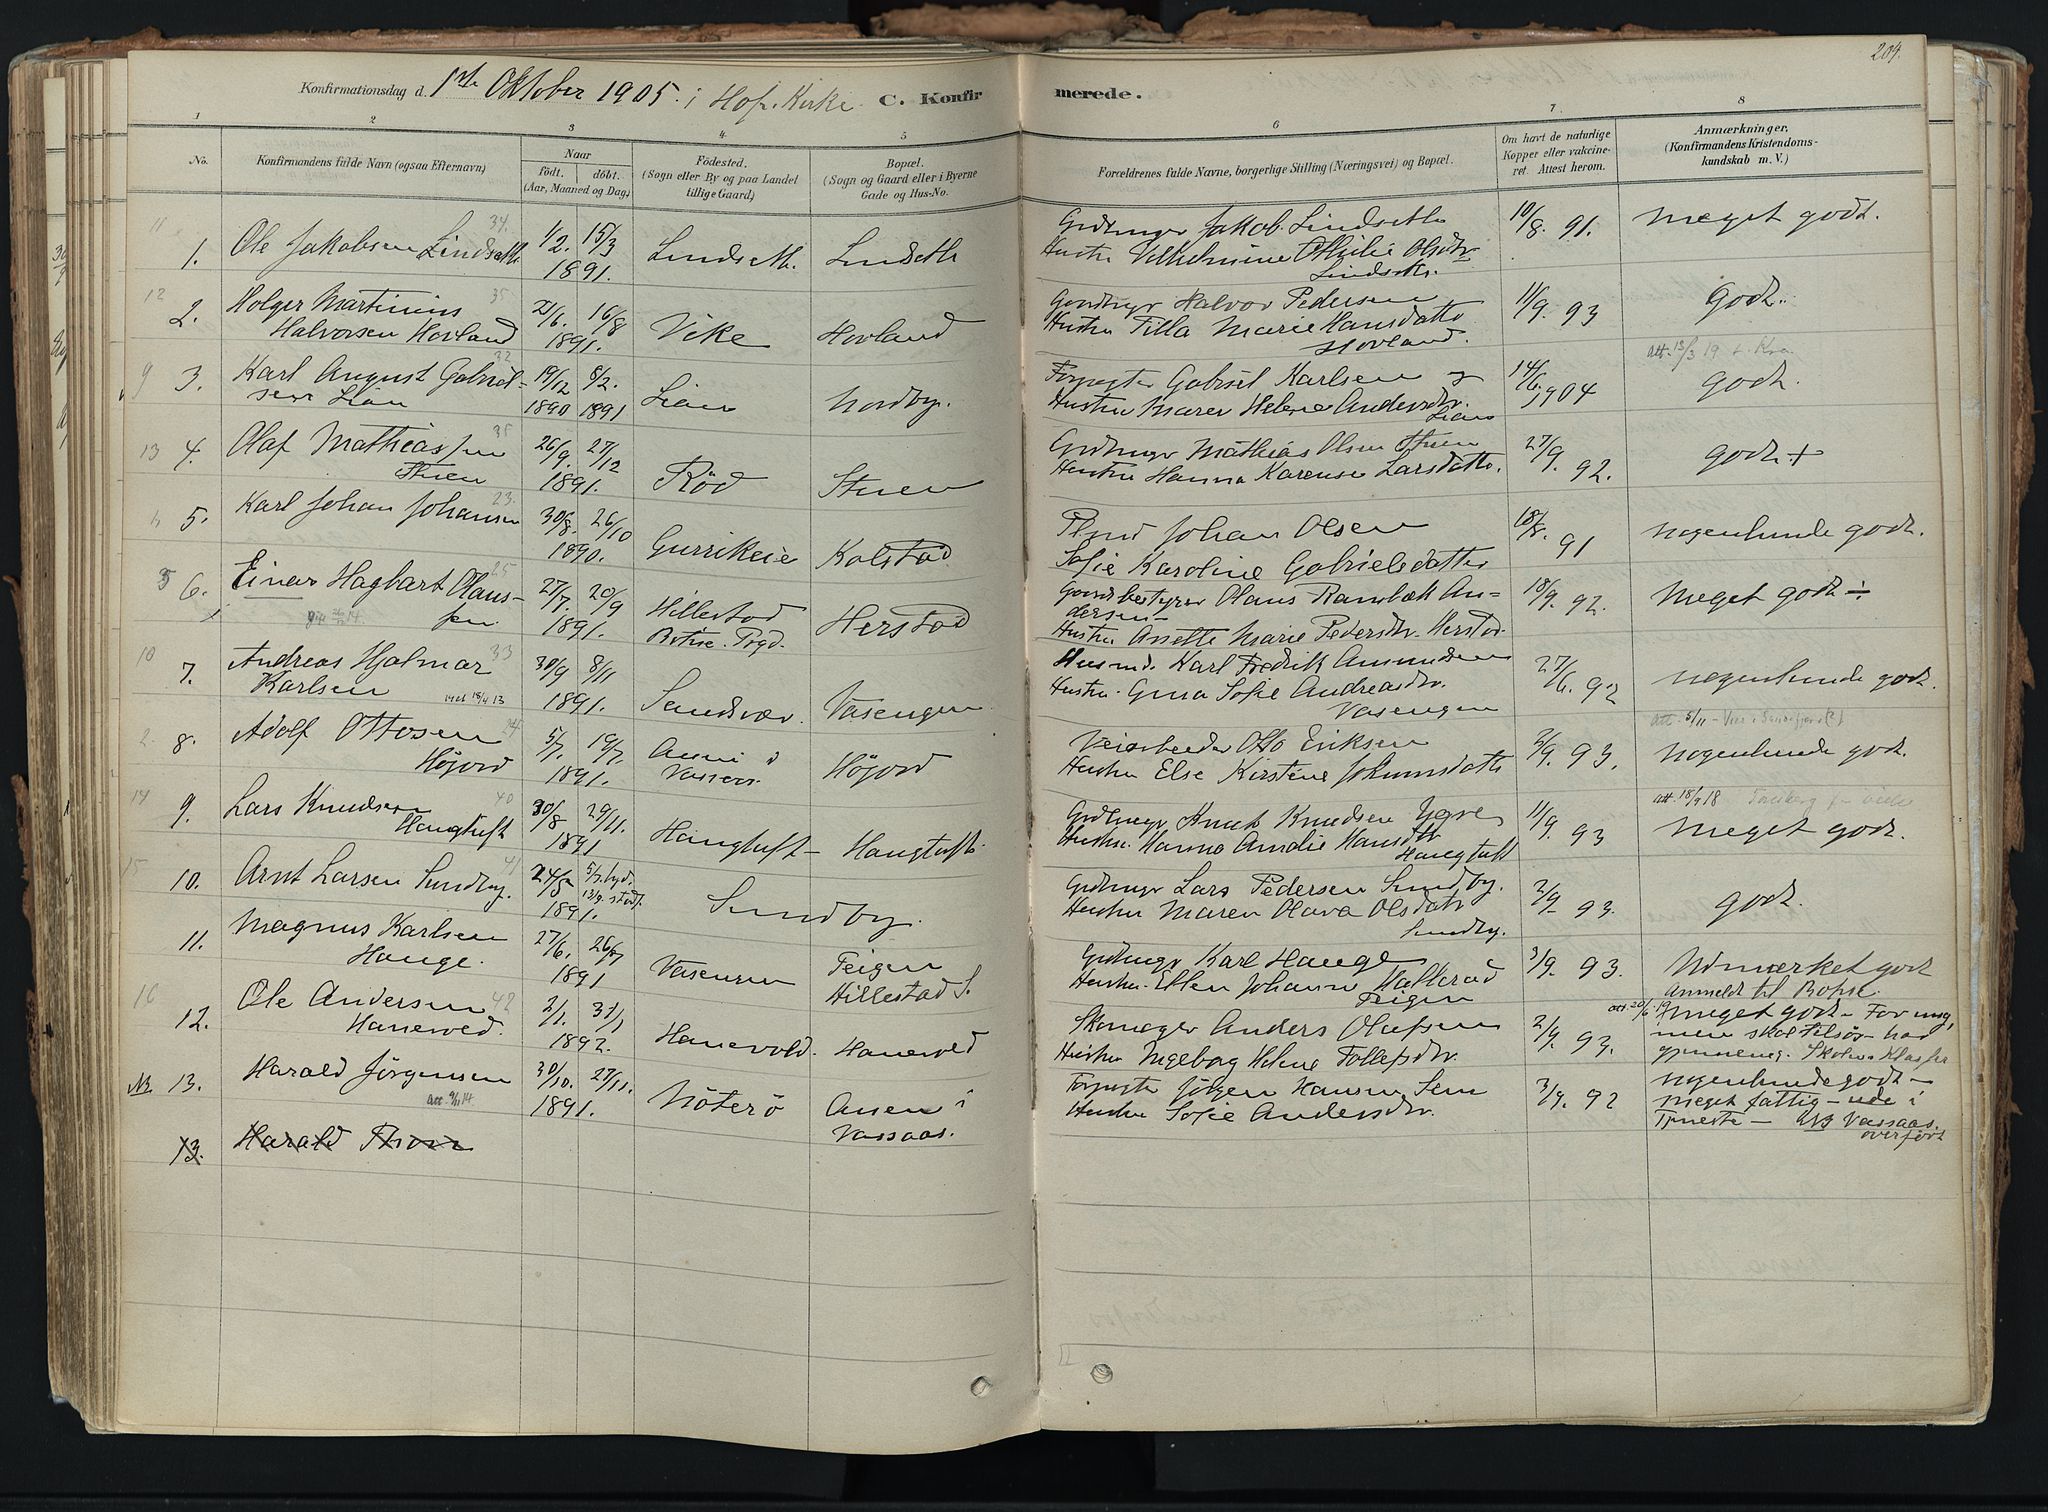 204.
Konfirmationsdag d. 1ste Oktober 1905. i Hof Kirke C. Konfirmerede.
1 2 3 4. 5 6 7. 8
No. Konfirmandens fulde Navn (ogsaa Efternavn) Naar födt. döbt. (Aar, Maaned og Dag.) Födested. (Sogn eller By og paa Landet tillige Gaard.) Bopæl. (Sogn og Gaard eller i Byerne Gade og Hus-No. Forældrenes fulde Navne, borgerlige Stilling (Næringsvei) og Bopæl. Om havt de naturlige Kopper eller vaccineret. Attest herom. Anmærkninger. (Konfirmandens Kristendomskundskab m. V.)
11 1. Ole Jakobsen Lindseth 34. 1/2. 15/3 1891. Lindseth. Lindseth Grdbruger Jakob Lindseth Hustru Vilhelmine Othilie Olsdtr Lindseth. 10/8. 91. meget godt.
12 2. Holger Martinius Halvorsen Hovland 35 21/6. 16/8 1891. Vike Hovland Halvor Pedersen Hustru Tilla Marie Hansdatter Hovland. 11/9. 93 Godt.
9 3. Karl August Gabrielsen Lian 32 19/12 8/2. 1890 1891 Lian Nordby. Forpagter Gabriel Karlsen og Hustru Maren Helene Andersdtr. Lian 14/6 1904 Att. 13/3 19 t. Kra. godt.
13 4. Olaf Mathiassen Stuen 35 26/9. 27/12 1891. Röd Stuen Grdbruger Mathias Olsen Stuen Hustru Hanna Karense Larsdatter. 27/9. 92. godt +
5. Karl Johan Johansen 23. 30/8. 26/10 1890. Gurrikeie Kolstad Johan Olsen Sofie Karoline Gabrielsdatter 18/8. 91 nogenlunde godt.
5 6. Einar Hagbart Olaussen. 25 27/7. 20/9 1891. Hillestad Botne Prgd. Herstad Gaardsbestyrer Olaus Rambæk Andersen Hustru Anette Marie Pedersdtr. Herstad 18/9. 92. meget godt ÷
10 7. Andreas Hjalmar Karlsen 33 30/9 8/11 1891. Sandsvær. Vasengen Husmd. Karl Fredrik Amundsen Hustru Gina Sofie Andreasdtr. Vasengen 27/6. 92 nogenlunde godt.
2. 8. Adolf Ottosen Höjord 24 5/7. 19/7. 1891. Aseni i Vassaas. Höjord Veiarbeider Otto Eriksen Hustru Else Kirstine Johannsdatter 2/9. 93. Att. 5/11 nogenlunde godt.
14 9. Lars Knudsen Haugtuft 40 30/8 29/11. 1891 Haugtuft Haugtuft. Grdbruger Knut Knudsen Hustru Hanna Amalie Hansdtr Haugtuft 11/9. 93 Att. 18/9 18 Tönsberg meget godt.
15 10. Arnt Larsen Sundby. 41 24/5 5/7. 13/9. stadf. 1891. Sundby. Grdbruger Lars Pedersen Sundby. Hustru Maren Olava Olsdatr Sundby. 2/9 93. godt.
11. Magnus Karlsen Hauge. 27/6. 26/7 1891 Vasengen Teigen Hillestad S. Grdbruger Karl Hauge Hustru Ellen Johanne Hallerud Teigen 3/9. 93. Udmærket godt Anmeldt til Botne.
16 12. Ole Andersen Hanevold. 42 2/1. 31/1 1892. Hanevold. Hanevold Skomager Anders Olafsen Hustru Ingeborg Helene Tollefsdtr. 2/9. 93. meget godt - For ung, men skal tilsös
13. Harald Jörgensen Att. 9/11 14 30/10. 27/11. 1891. Nöterö Asen i Vassaas. Forpagter Jörgen Hansen Sem Hustru Sofie Andersdtr. 3/9. 92 nogenlunde godt - meget fattig - ude i Tjeneste - NB Vassaas. overfört
13. Harald Thom